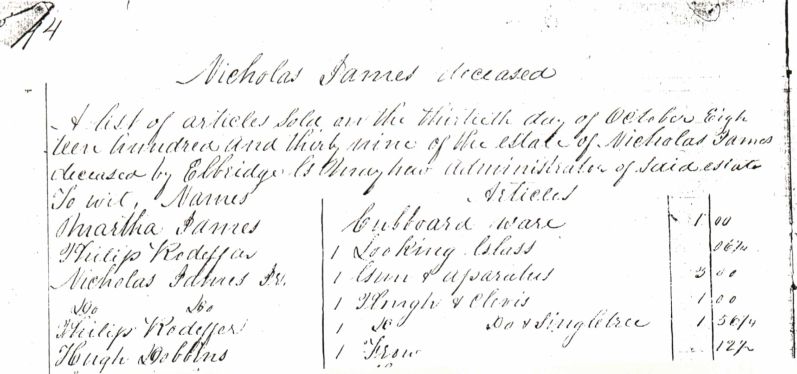 14
Nicholas James deceased
A list of articles sold on the thirtieth day of October Eigh
teen hundred and thirty nine of the estate of Nicholas James
deceased by Elbridge G Mayhew administrator of said estate
To wit, Names Articles
Martha James Cubboard ware 1 00
Philip Rodeffer 1 Looking Glass 06¼
Nicholas James Jr. 1 Gun & aparatus 3 00
Do Do 1 Plough & Clevis 1 00
Philip Rodeffer 1 Do Do & Singletree 1 56¼
Hugh Dobbins 1 Frow 12½